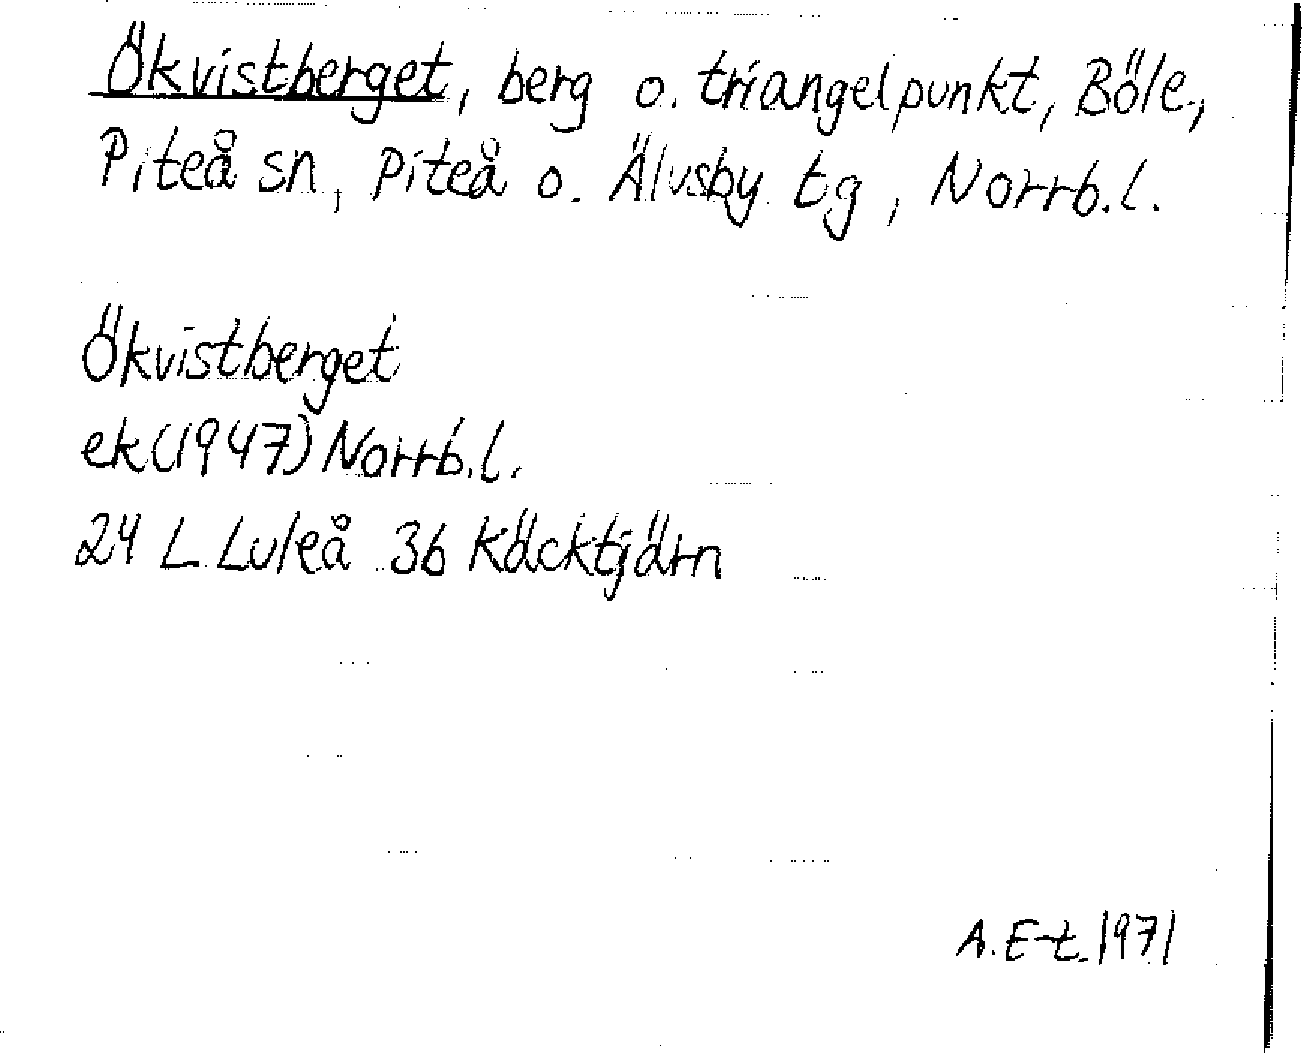 Ökvistberget, berg o. triangelpunkt, Böle,
Piteå sn, Piteå o. Älvsby tg, Norrb.l.
Ökvistberget
ek(1947) Norrb.l.
24 L Luleå 3b Käcktjärn
A.E-t. 1971